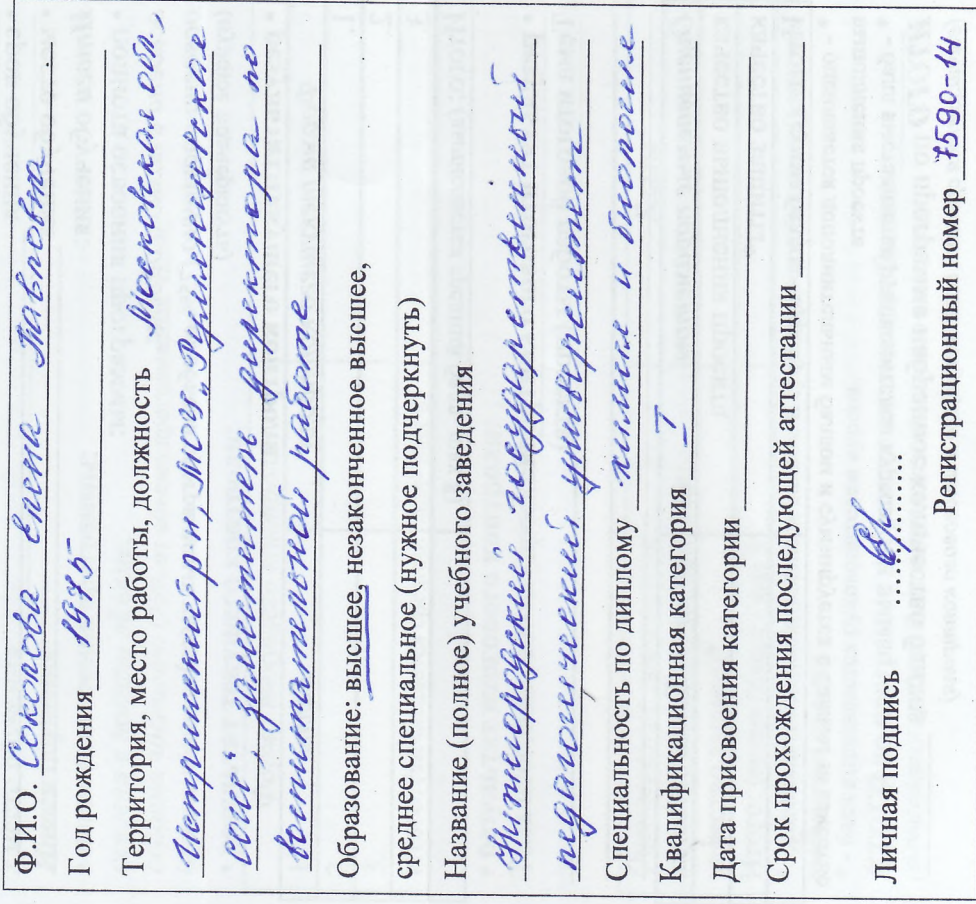 Ф.И.О. Соколова Елена Павловна
Год рождения 1975
Территория, место работы, должность Московская обл.,
Истринский р-н, МОУ „Румянцевская
СОШ“, заместитель директора по
воспитательной работе
Образование: высшее, незаконченное высшее,
среднее специальное (нужное подчеркнуть)
Название (полное) учебного заведения
Нижегородский государственный
педагогический университет
Специальность по диплому химия и биология
Квалификационная категория I
Дата присвоения категории
Срок прохождения последующей аттестации
Личная подпись
Регистрационный номер 7590-14